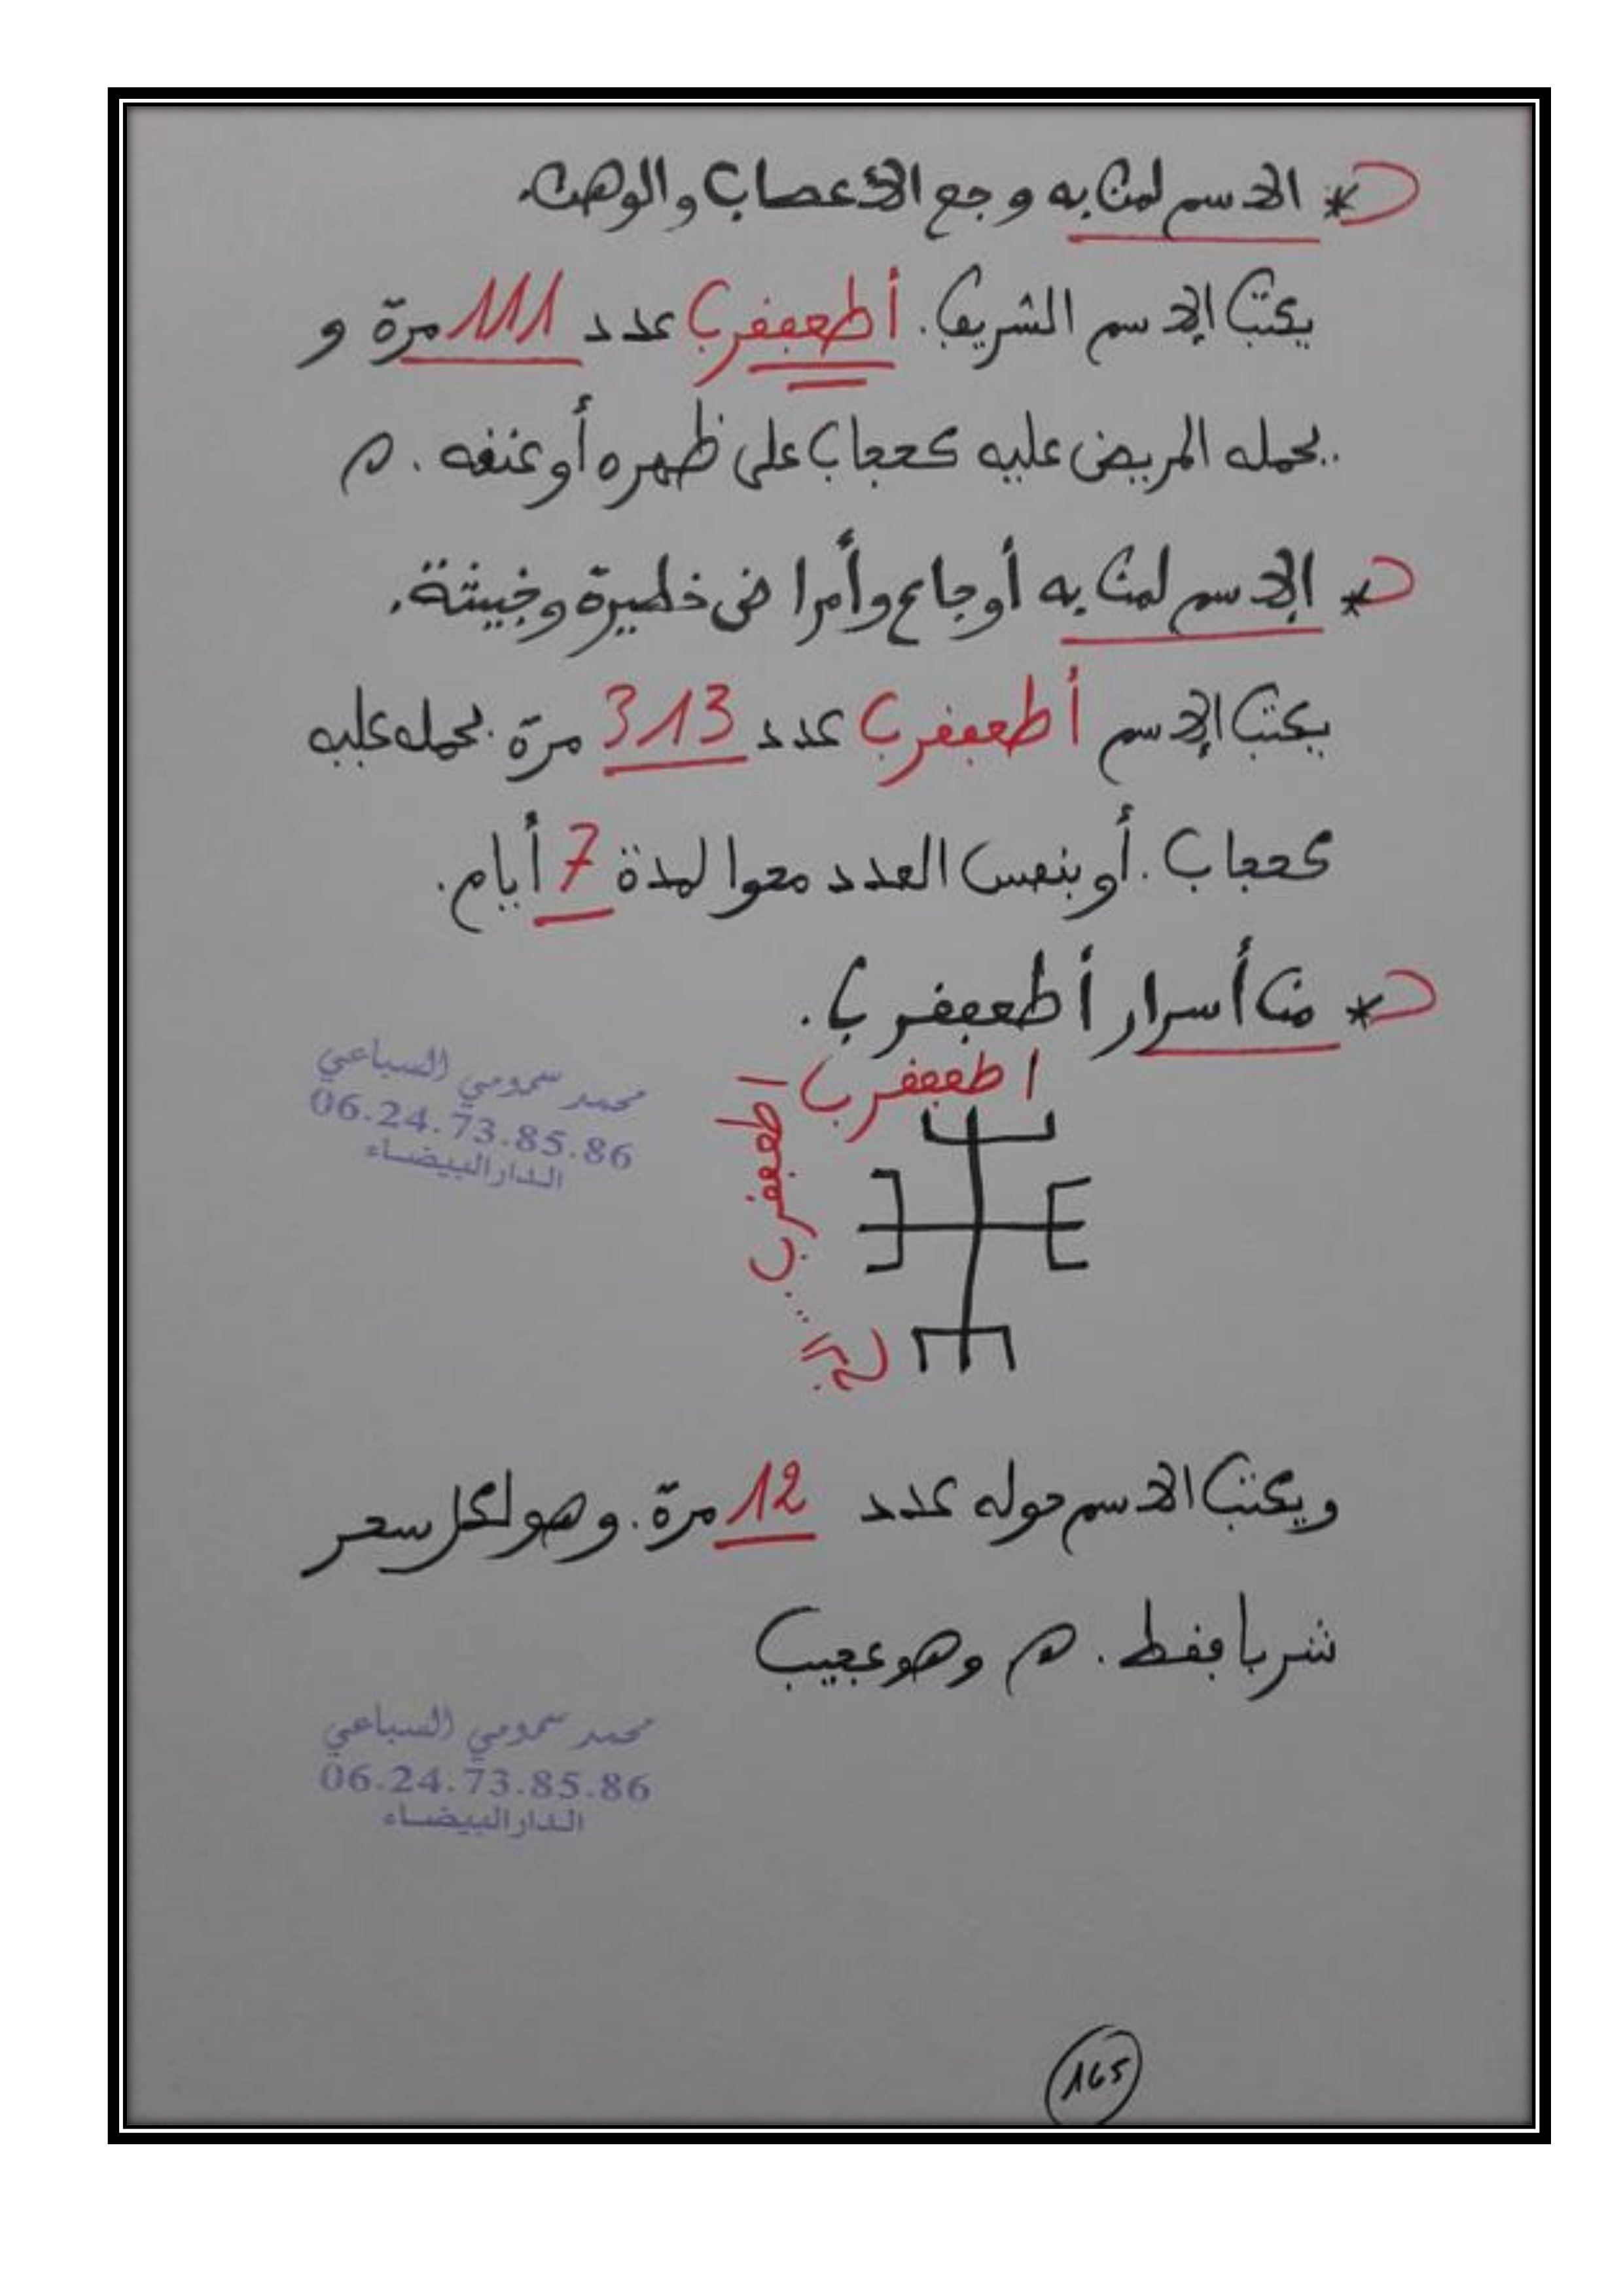 * الاسم لمن به وجع الأعصاب والوهن.
يكتب الإسم الشريف. أطعففرب عدد 111 مرة و
يحمله المريض عليه كحجاب على ظهره أو عنقه. م
* الإسم لمن به أوجاع وأمراض خطيرة وخبيثة.
يكتب الإسم أطعففرب عدد 313 مرة يحمله عليه
كحجاب. أو بنفس العدد محوا لمدة 7 أيام.
* من أسرار أطعففرب.
اطعففرب
اطعففرب...
محمد سمومي السباعي
06.24.73.85.86
الدار البيضاء
ويكتب الاسم حوله عدد 12 مرة. وهو لكل سحر
شربا فقط. م وهو عجيب
محمد سمومي السباعي
06.24.73.85.86
الدار البيضاء
165